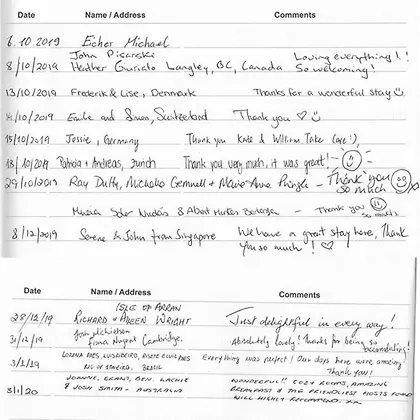 Date Name / Address Comments
6.10.2019 Eicher Michael
John Pisarski Loving everything!!
8/10/2019 Heather Langley, BC, Canada So welcoming!
13/10/2019 Frederik & Lise, Denmark Thanks for a wonderful stay
14/10/2019 Emilie and Switzerland Thank you ♡
15/10/2019 Jessie, Germany Thank you Kate & William Take Care :)
18/10/2019 Patricia & Andreas, Thank you very much, it was great!
29/10/2019 Ray Duffy, Michelle Gemmell & Marie-Anne Pringle – Thank you
so much
& Albert – Thank you
so much
8/12/2019 Serene & John from Singapore We have a great stay here, Thank
you so much! ♡
Date Name / Address Comments
ISLE OF ARRAN
28/12/19 RICHARD & AILEEN WRIGHT Just delightful in every way!
31/12/19 Absolutely lovely! Thanks for being so
from Cambridge. accomodating!
3/1/19 Everything was perfect! Our days here were amazing!
RIO DE JANEIRO, BRASIL Thank you!
3/1/20 JOANNE, GRANT, BEN, LACHIE WONDERFUL! COSY ROOMS, AMAZING
& JOSH SMITH - AUSTRALIA BREAKFAST & THE FRIENDLIEST HOSTS
WILL HIGHLY RECOMMEND. xx